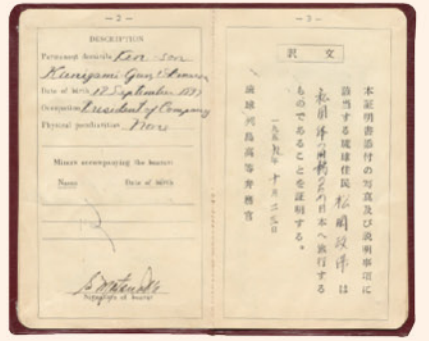 — 2 —
DESCRIPTION
Permanent domicile Kin-son
Kunigami Gun, Okinawa
Date of birth 18 September 1897
Occupation President of Company
Physical peculiarities None
Minors accompanying the bearer
Name Date of birth
Signature of bearer
— 3 —
訳文
本証明書添付の写真及び説明事項に
該当する琉球住民 松岡政保 は
の日本へ旅行する
ものであることを証明する。
一九五 年 十月 日
琉球列島高等弁務官